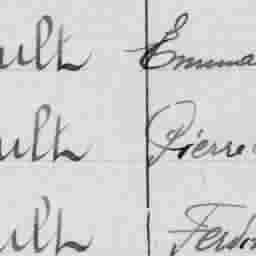 ult Emma
ult Pierre
ult Ferdin